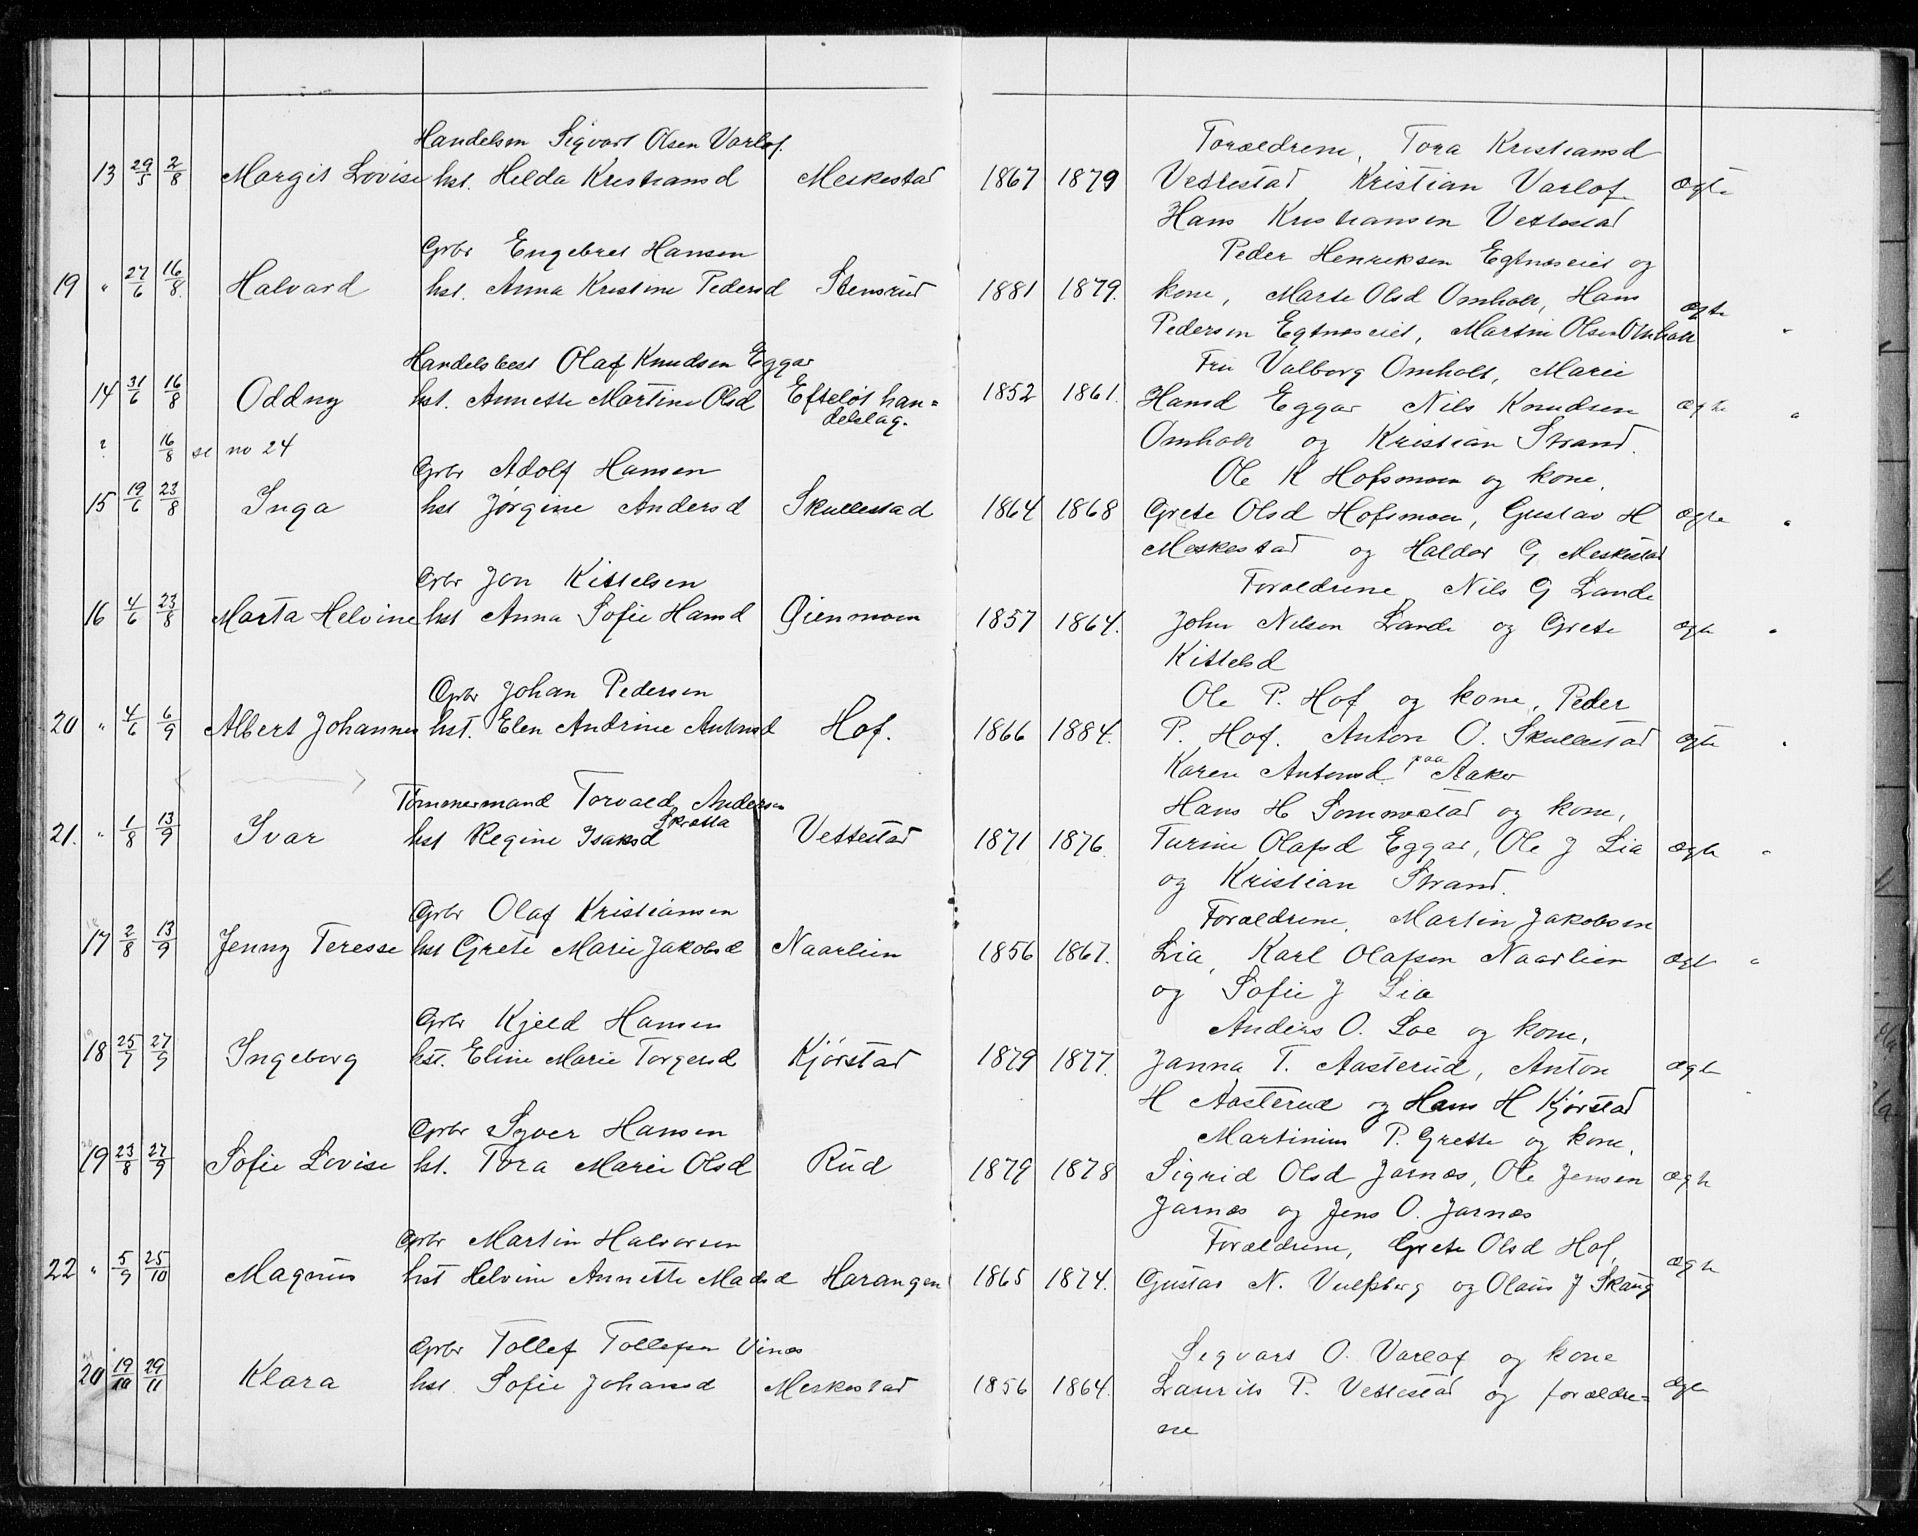 Handelsm Sigvart Olsen Varlof.
13 29/5 2/8 Margit Lovise hst. Helda Kristiansd Meskestad
Grbr Engebret Hansen
19 " 27/6 16/8 Halvard hst. Anna Kristine Pedersd Stensrud
Handelsbest Olaf Knudsen Eggar
14 31/6 16/8 Oddny hst. Annette Martine Olsd Efteløt han=
delslag.
16/8 se no 24
Grbr Adolf Hansen
15 19/6 23/8 Inga hst Jørgine Andersd Skullestad
Grbr Jon Kittelsen
16 4/6 23/8 Marta Helvine hst Anna Sofie Hansd Øienmoen
Grbr Johan Pedersen
20 " 4/6 6/9 Albert Johannes hst. Elen Andrine Antonsd Hof.
Tømmermand Torvald Andersen
Skrotta
21. " 1/8 13/9 Ivar hst Regine Isaksd Vettestad
Grbr Olaf Kristiansen
17 2/8 13/9 Jenny Teresse hst Grete Marie Jakobsd Naarlien
Grbr Kjeld Hansen
18 25/7 27/9 Ingeborg hst. Eline Marie Torgersd Kjørstad
Grbr Syver Hansen
19 23/8 27/9 Sofie Lovise hst. Tora Marie Olsd Rud
Grbr Martin Halvorsen
22 " 5/9 25/10 Magnus hst Helvine Annette Madsd Harangen
Grbr Tollef Tollefsen Vinæs
20 19/10 29/11 Klara hst. Sofie Johansd Meskestad
Forældrene, Tora Kristiansd
1867 1879 Vettestad Kristian Varlof ægte
Hans Kristiansen Vettestad
Peder Henriksen Egtnæseiet og
1881 1879. kone, Marte Olsd Omholt, Hans ægte
Pedersen Egtnæseiet, Martin Olsen Omholt "
Fru Valborg Omholt, Marie
1852 1861. Hansd Eggar Nils Knudsen ægte "
Omholt og Kristian Strand.
Ole K Hofsmoen og kone,
1864 1868 Grete Olsd Hofsmoen, Gustav H ægte "
Meskestad og Haldor G Meskestad
Forældrene Nils G Lande
1857 1864. John Nilsen Lande og Grete ægte "
Kittelsd
Ole P. Hof og kone, Peder
1866 1884. P. Hof. Anton O. Skullestad ægte "
Karen Antonsd paa Aaker
Hans H Sommestad og kone,
1871 1876. Turine Olafsd Eggar, Ole J Lia ægte "
og Kristian Strand.
Forældrene, Martin Jakobsen
1856 1867. Lia, Karl Olafsen Naarlien ægt "
og Sofie J Lia
Anders O. Loe og kone,
1879 1877. Janna T. Aasterud, Anton ægte
H Aasterud og Hans H Kjørstad
Martinius P. Grette og kone,
1879 1878 Sigrid Olsd Jarnæs, Ole Jensen ægte
Jarnæs og Jens O. Jarnæs
Forældrene, Grete Olsd Hof,
1865 1874. Gustav N. Vulfsberg og Olaus J Skaug ægte
Sigvart O. Varlof og kone
1856 1864. Laurits P. Vettestad og forældre= ægte
ne